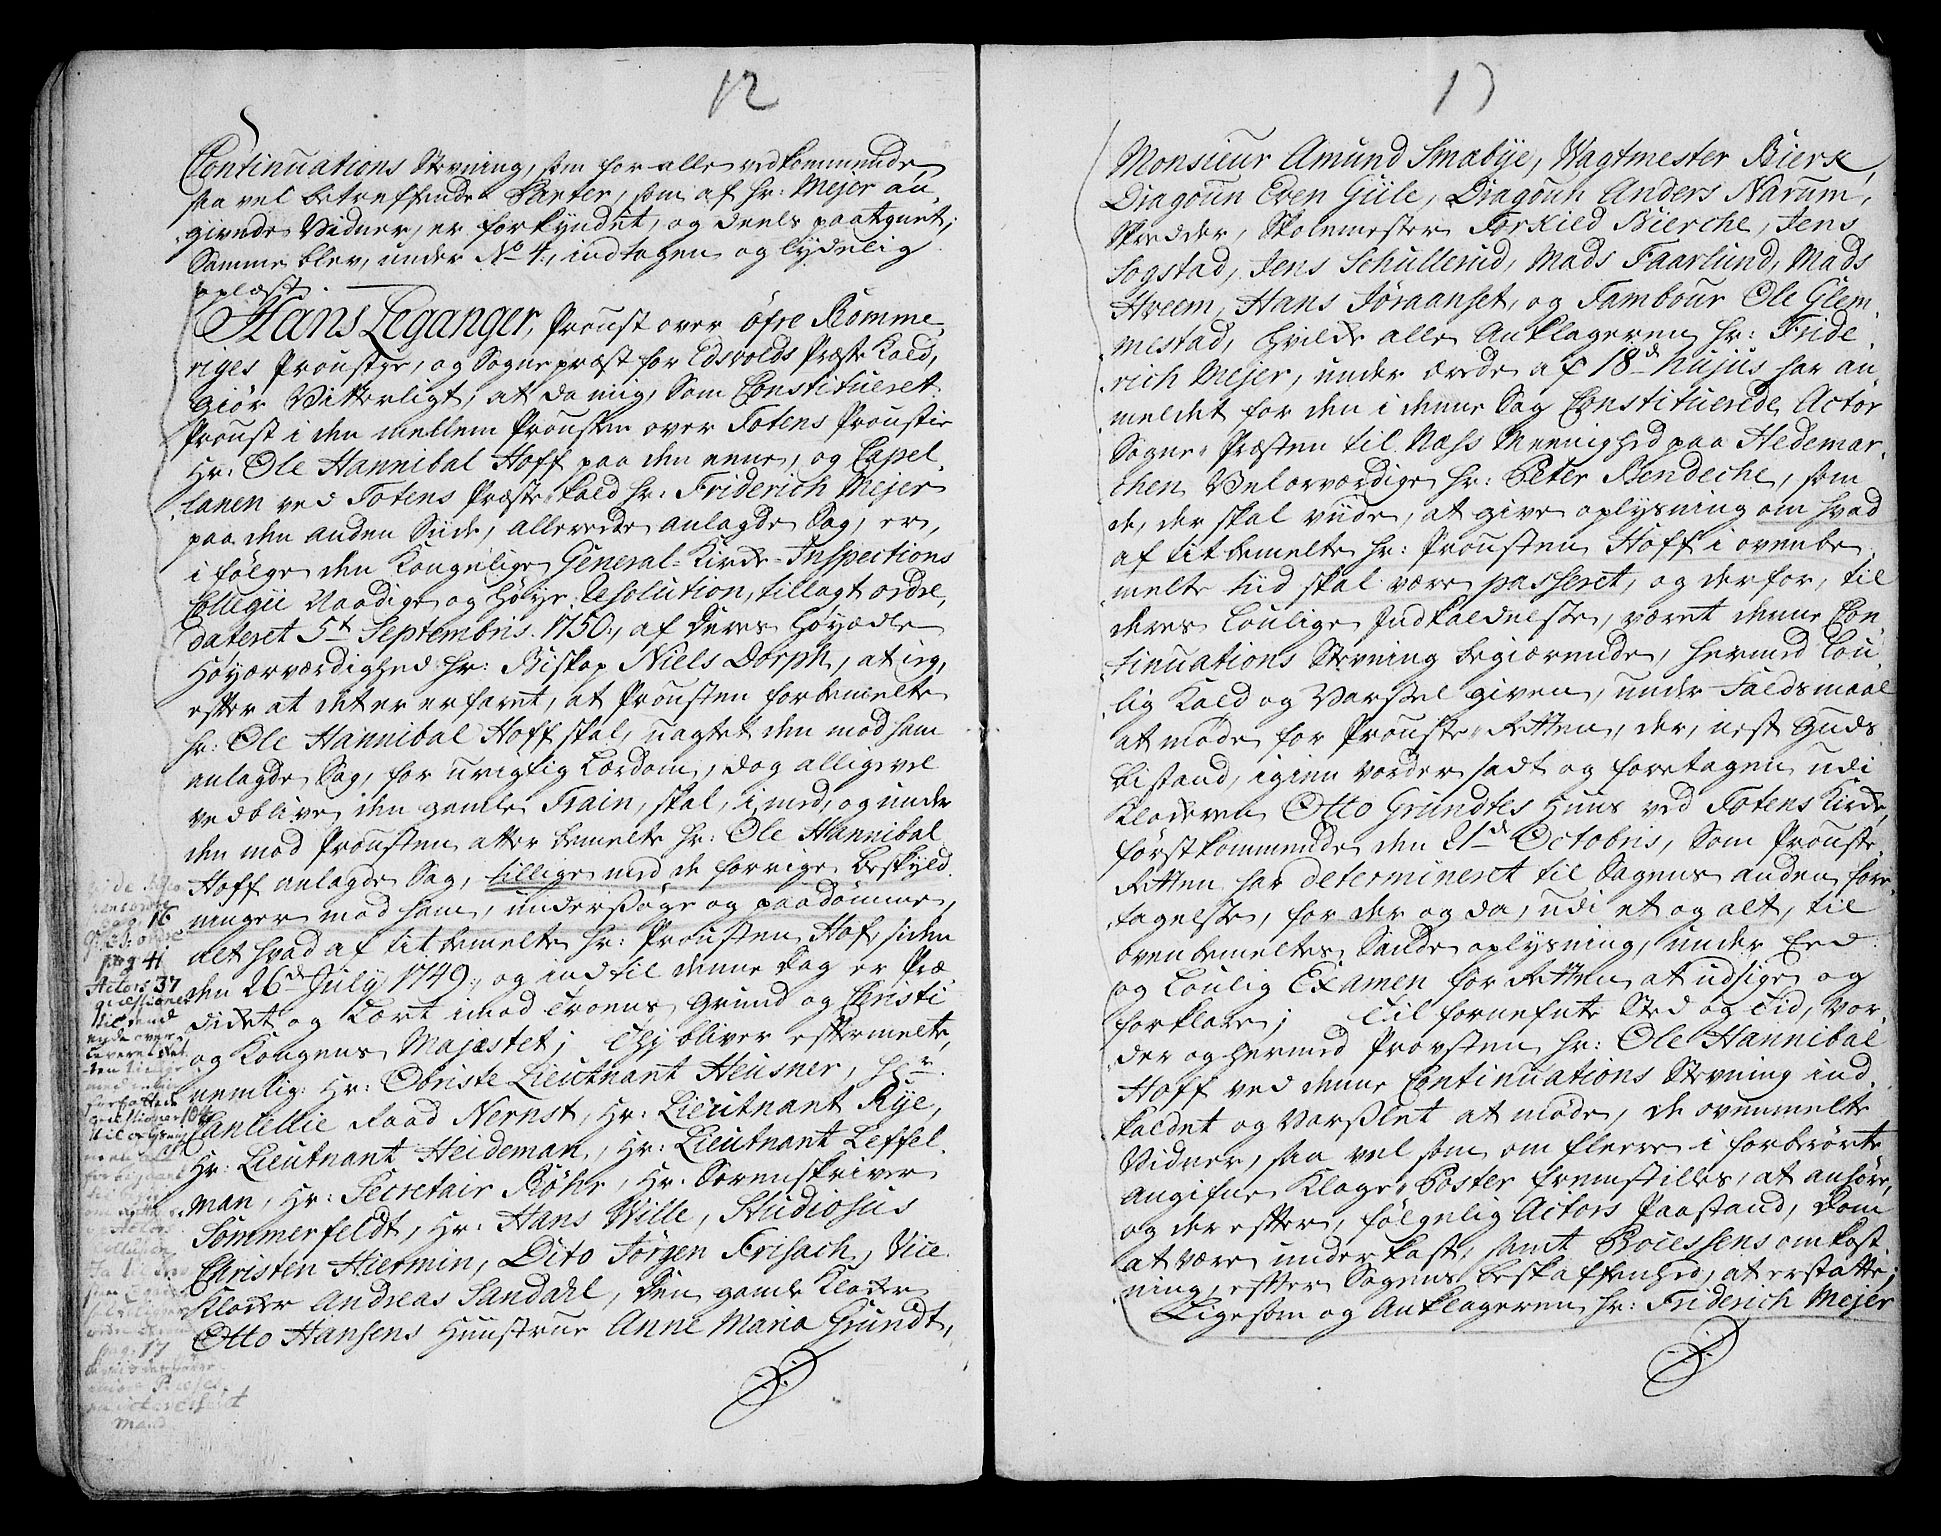 12
Continuations Stevning, som for alle vedkommende
saa vel betreffende Parter, som af Hr: Mejer an-
givende Vidner, er forkyndet, og deels paategnet;
Samme blev, under No 4, indtagen og lydelig
oplæst.
Hans Leganger, Proust over Øfre Romme-
riges Proustie, og Sognepræst for Edsvolds Præste Kald,
Giør Vitterligt, at da mig, som Constitueret
Proust i den mellem Prousten over Totens Proustie
Hr: Ole Hannibal Hoff paa den eene, og Capel-
lanen ved Totens Præste Kald Hr: Friderich Mejer
paa den anden Siide, allerede anlagde Sag, er,
i følge den Kongelige General-Kirke-Inspections
Collegii Naadige og høye Resolution, tillagt ordre,
dateret 5t Septembris 1750, af Deres Høyædle
Høyærværdighed Hr: Biskop Niels Dorph, at ieg,
efter at det er erfaret, at Prousten forbemelte
Hr: Ole Hannibal Hoff skal, uagtet den mod ham
anlagde Sag, for urigtig Lærdom, dog alligevel
vedblive den gamle Train, skal, i med, og under
den mod Prousten atter bemelte Hr: Ole Hannibal
Hoff anlagde Sag, tillige med de forrige Beskyld-
ninger mod ham, undersøge og paadømme,
alt hvad af titbemelte Hr: Prousten Hof, siden
den 26d July 1749, og indtil denne Dag er Præ-
diket og Lært imod Troens Grund og Christi
og Kongens Majestet; Thi bliver eftermelte,
nemlig: Hr: Obriste Lieutnant Heusner, Hr
Cancellie Raad Nernst, Hr: Lieutnant Rye,
Hr: Lieutnant Heideman, Hr: Lieutnant Leffel-
man, Hr: Secretair Røhr, Hr: Sorenskriver
Sommerfeldt, Hr: Hans Wille, Studiosus
Christen Hiermin, Dito Jørgen Frisach, Vice-
Klocker Andreas Sandahl, den gamle Klocker
Otto Hansens Huustrue Anne Maria Grundt,
pag: 16
pag 41
Actors 37
qvæstioner
pag: 17
Mand
13
Monsieur Amund Smebye, Wagtmester Bierke,
Dragoun Even Giile, Dragoun Anders Narum,
Skredder, Skolemester Torkield Bierche, Jens
Sogstad, Jens Schullerud, Mads Faarlund, Mads
Hveem, Hans Jøraanset, og Tambour Ole Glem-
mestad, hvilke alle Anklageren Hr: Fride-
rich Mejer, under ærede af 18d hujus har an-
meldet for den i denne Sag Constituerede Actor
Sogne-Præsten til Næss Menighed paa Hedemar-
chen Velærværdige Hr: Peter Rendeche, som
de, der skal viide, at give oplysning om hvad
af titbemelte Hr: Prousten Hoff i ovenbe-
melte tiid skal være passeret, og derfor, til
deres Loulige Indkaldelse, været denne Con-
tinuations Stevning begiærende, hermed Lou-
lig Kald og Varsel given, under Faldsmaal
at møde for Prouste-Retten, der, nest Guds
bistand, igien vorder sadt og foretagen udi
Klockeren Otto Grundtes Huus ved Totens Kirke,
førstkommende den 21d Octobris, som Prouste-
Retten har determineret til Sagens anden fore-
tagelse, for der og da, udi et og alt, til
ovenbemeltes Sandt oplysning, under Eed
og Loulig Examen for Retten at udsige og
forklare; Til fornefnte Sted og Tid, vor-
der og hermed Provsten Hr: Ole Hannibal
Hoff ved denne Continuations Stevning ind-
kaldet og Varslet at møde, de ovenmelte
Vidner, saa vel som om fleere i forberørte
angifne Klage-Poster fremstilles, at anhøre,
og derefter, følgelig Actors Paastand, Dom
at være underkast, samt Processens omkost-
ning, efter Sagens beskaffenhed, at erstatte;
Ligesom og Anklageren Hr: Friderich Mejer